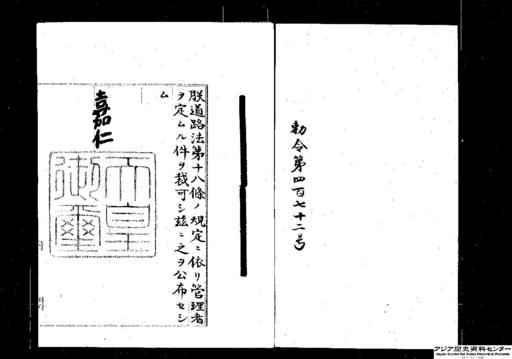 勅令第四百七十二号
朕道路法第十八條ノ規定ニ依リ管理者
ヲ定ムル件ヲ裁可シ茲ニ之ヲ公布セシ
ム
嘉仁
天皇
御璽
アジア歴史資料センター
Japan Center for Asian Historical Records